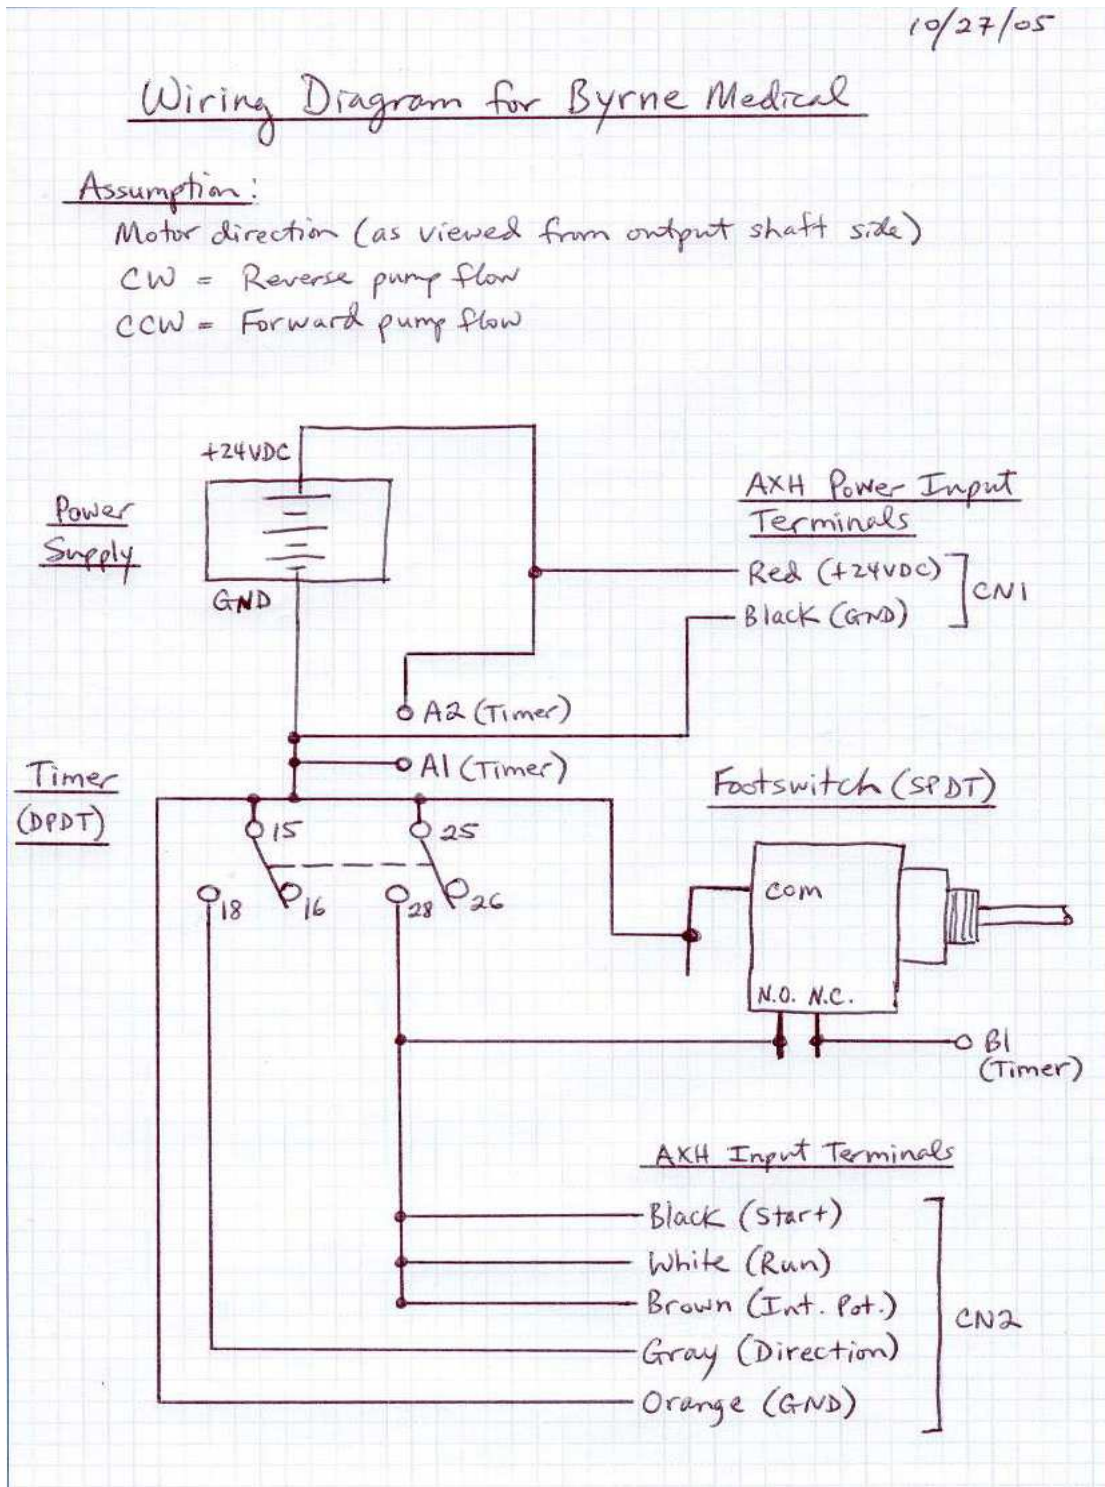 10/27/05
Wiring Diagram for Byrne Medical
Assumption:
Motor direction (as viewed from output shaft side)
CW = Reverse pump flow
CCW = Forward pump flow
+24VDC
Power
Supply
GND
AXH Power Input
Terminals
Red (+24VDC)
Black (GND)
CN1
A2 (Timer)
A1 (Timer)
Timer
(DPDT)
15
25
18
16
28
26
Footswitch (SPDT)
COM
N.O. N.C.
B1
(Timer)
AXH Input Terminals
Black (Start)
White (Run)
Brown (Int. Pot.)
Gray (Direction)
Orange (GND)
CN2